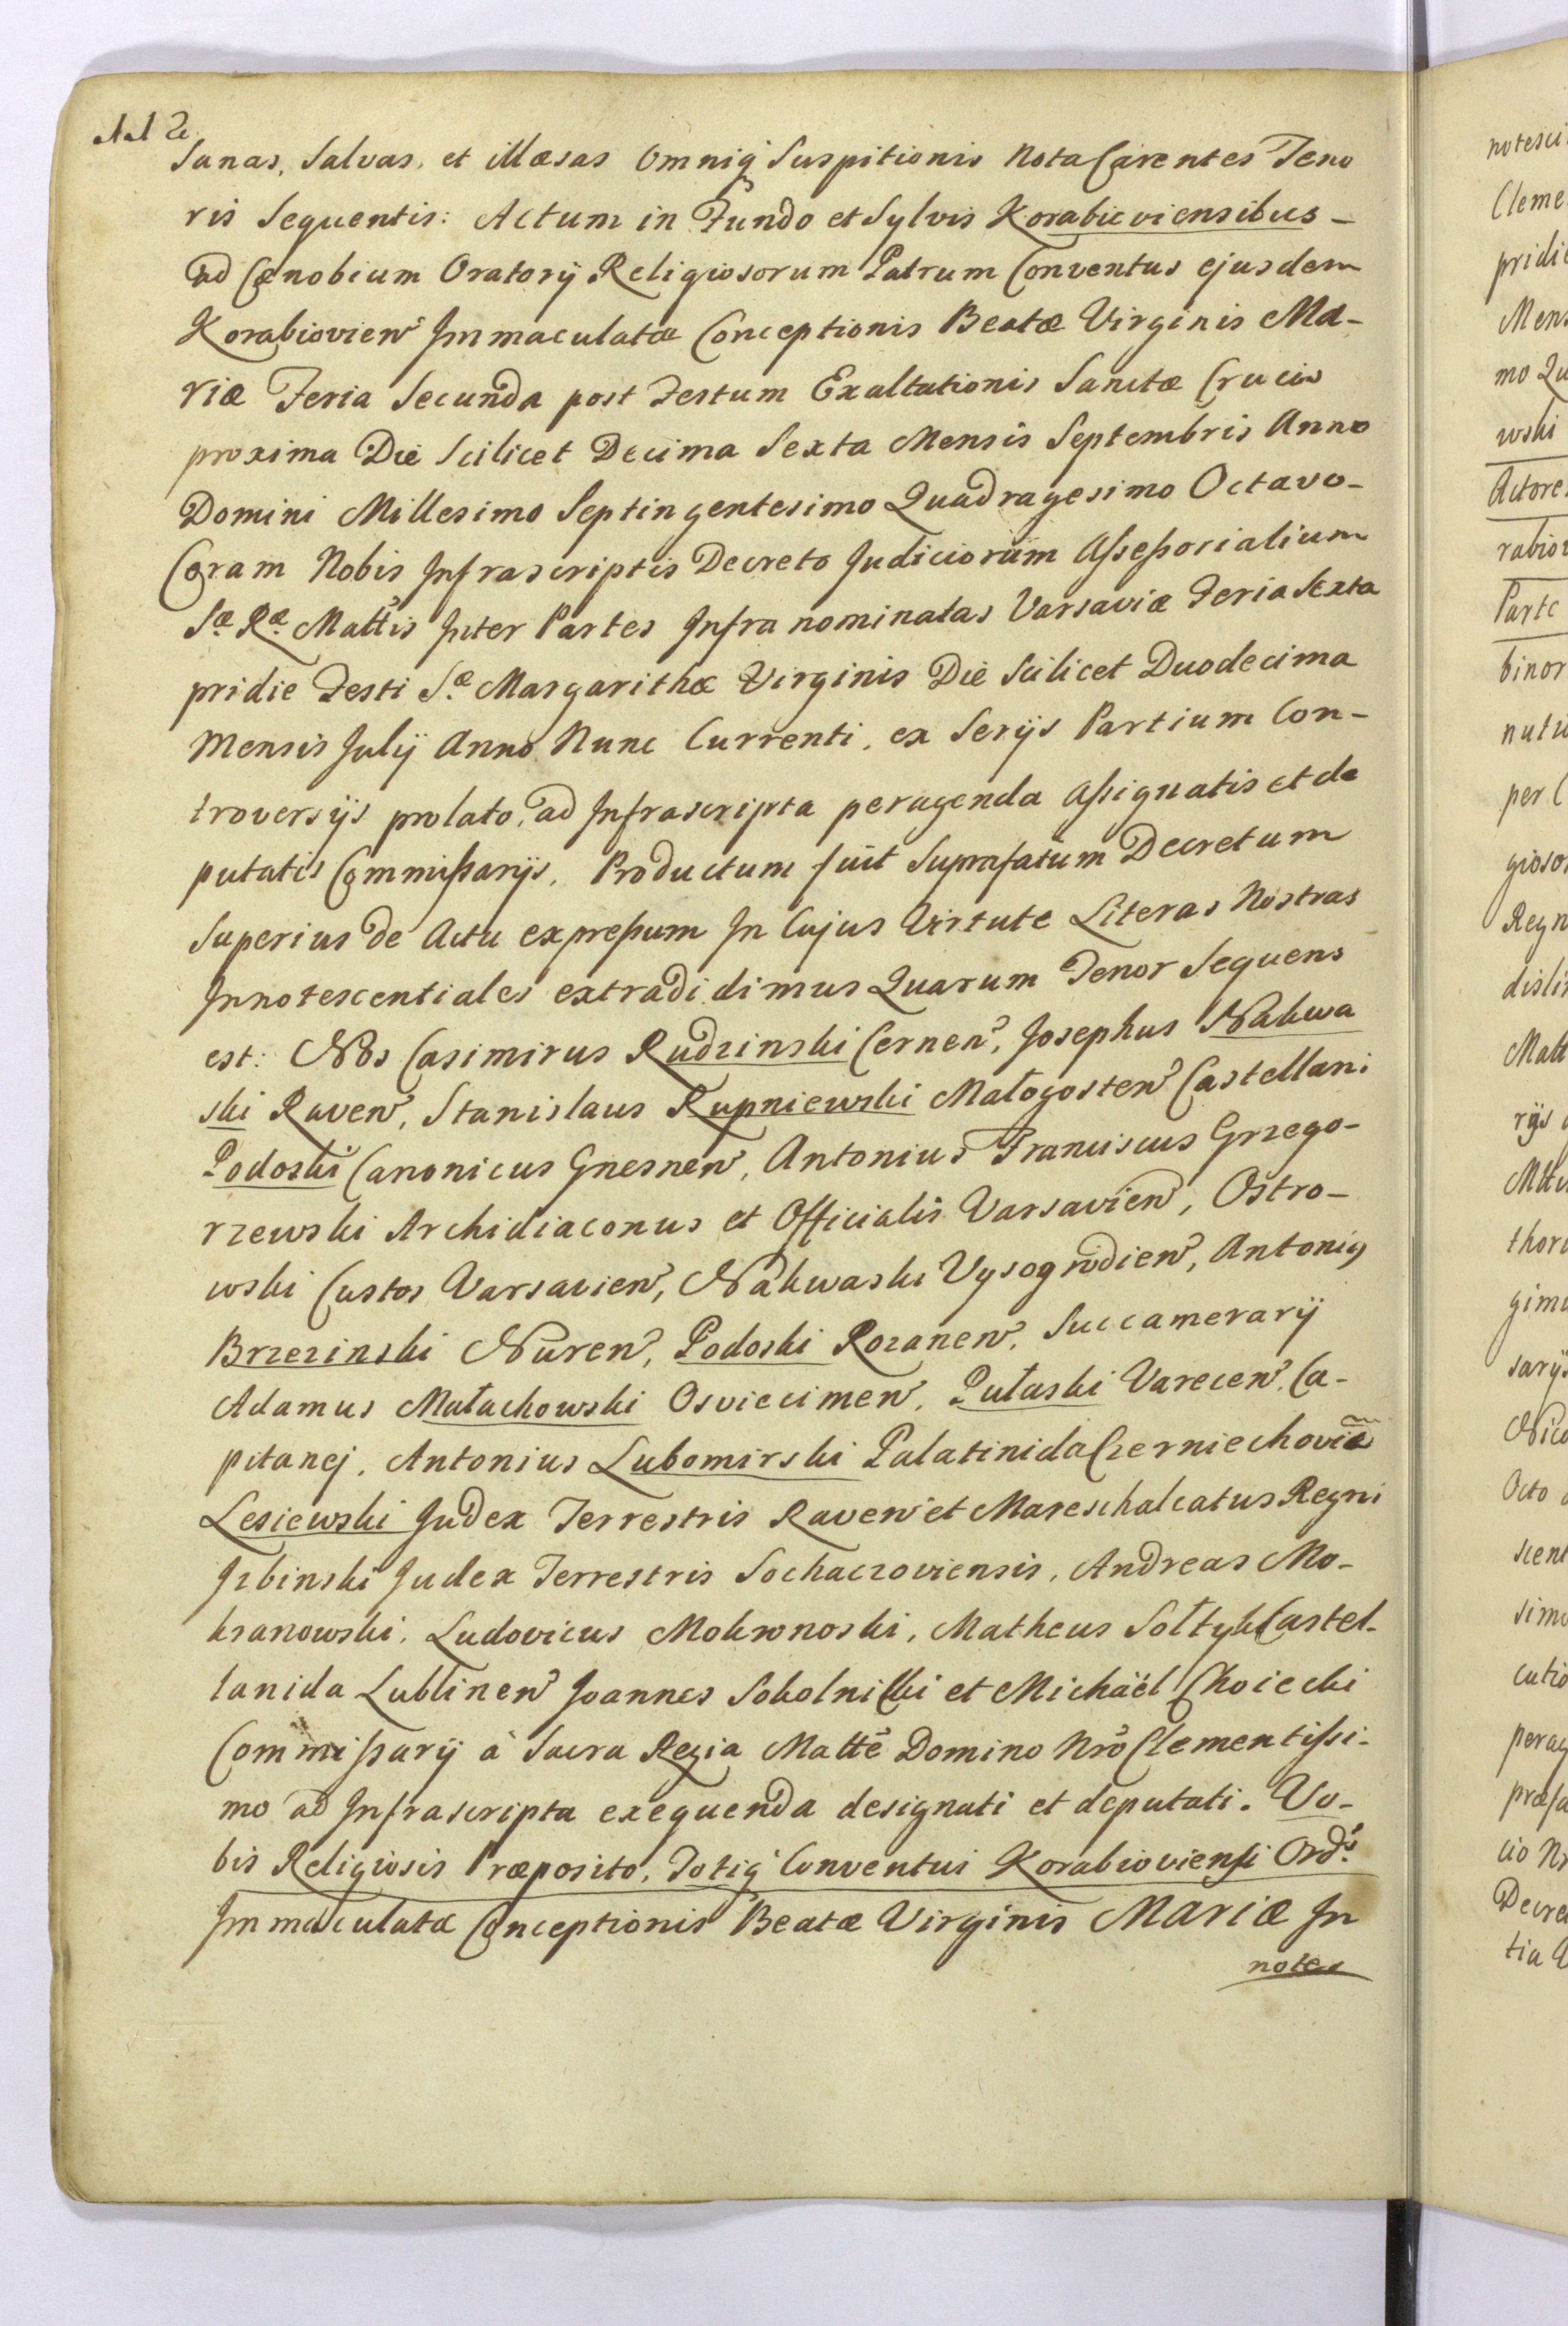 112
Sanas, Salvas, et illæsas Omniq Suspitionis Nota Carentes Teno
ris Sequentis: Actum in Fundo et Sylvis Korabieviensibus -
ad Cænobium Oratorÿ Religiosorum Patrum Conventus ejusdem
Korabiovien Immaculatæ Conceptionis Beatæ Virginis Ma-
riæ Feria Secunda post Festum Exaltationis Sanctæ Crucis
proxima Die Scilicet Decima Sexta Mensis Septembris Anno
Domini Millesimo Septingentesimo Quadragesimo Octavo -
Coram Nobis Infrascriptis Decreto Judiciorum Aſseſsorialium
Sæ Ræ Mattis Inter Partes Infra nominatas Varsaviæ Feria Sexta
pridie Festi Sæ Margarithæ Virginis Die Scilicet Duodecima
Mensis Julÿ Anno Nunc Currenti, ex Serÿs Partium Con-
troversÿs prolato, ad Infrascripta peragenda Aſsignatis et de
putatis Commiſsarÿs, Productum fuit Suprafatum Decretum
Superius de Actu expreſsum In Cujus Virtute Literas Nostras
Innotescentiales extradidimus Quarum Tenor Sequens
est: Nos Casimirus Rudzinski Cernen, Josephus Nakwa
ski Raven, Stanislaus Rupniewski Małogosten Castellani
Podoski Canonicus Gnesnen, Antonius Franciscus Grzego-
rzewski Archidiaconus et Officialis Varsavien, Ostro-
wski Custos Varsavien, Nakwaski Vysogrodien, Antonig
Brzezinski Nuren, Podoski Rozanen, Succamerarÿ
Adamus Małachowski Osviecimen, Pułaski Varecen, Ca-
pitanej, Antonius Lubomirski Palatinida Czerniechoviæ
Lesiewski Judex Terrestris Raven et Mareschalcatus Regni
Izbinski Judex Terrestris Sochaczoviensis, Andreas Mo-
kranowski, Ludovicus Mokronoski, Matheus Sołtyk Castel-
lanida Lublinen Joannes Sokolnicki et Michaël Choiecki
Commiſsarÿ à Sacra Regia Mattē Domino Nrō Clementiſsi-
mo ad Infrascripta exequenda designati et deputati. Vo-
bis Religiosis Præposito, Totiq Conventui Korabiovienſi Ords
Immaculatæ Conceptionis Beatæ Virginis MARIÆ In
notes
notesci
Cleme
pridie
Mens
mo Qu
wski
Actore
rabio
Parte
binor
nutu
per C
gioso
Regn
disti
Matt
rÿs
thor
gimu
sarÿs
Nico
Octo
scent
simo
cutio
perag
præfa
cio Nr
Decre
tia V